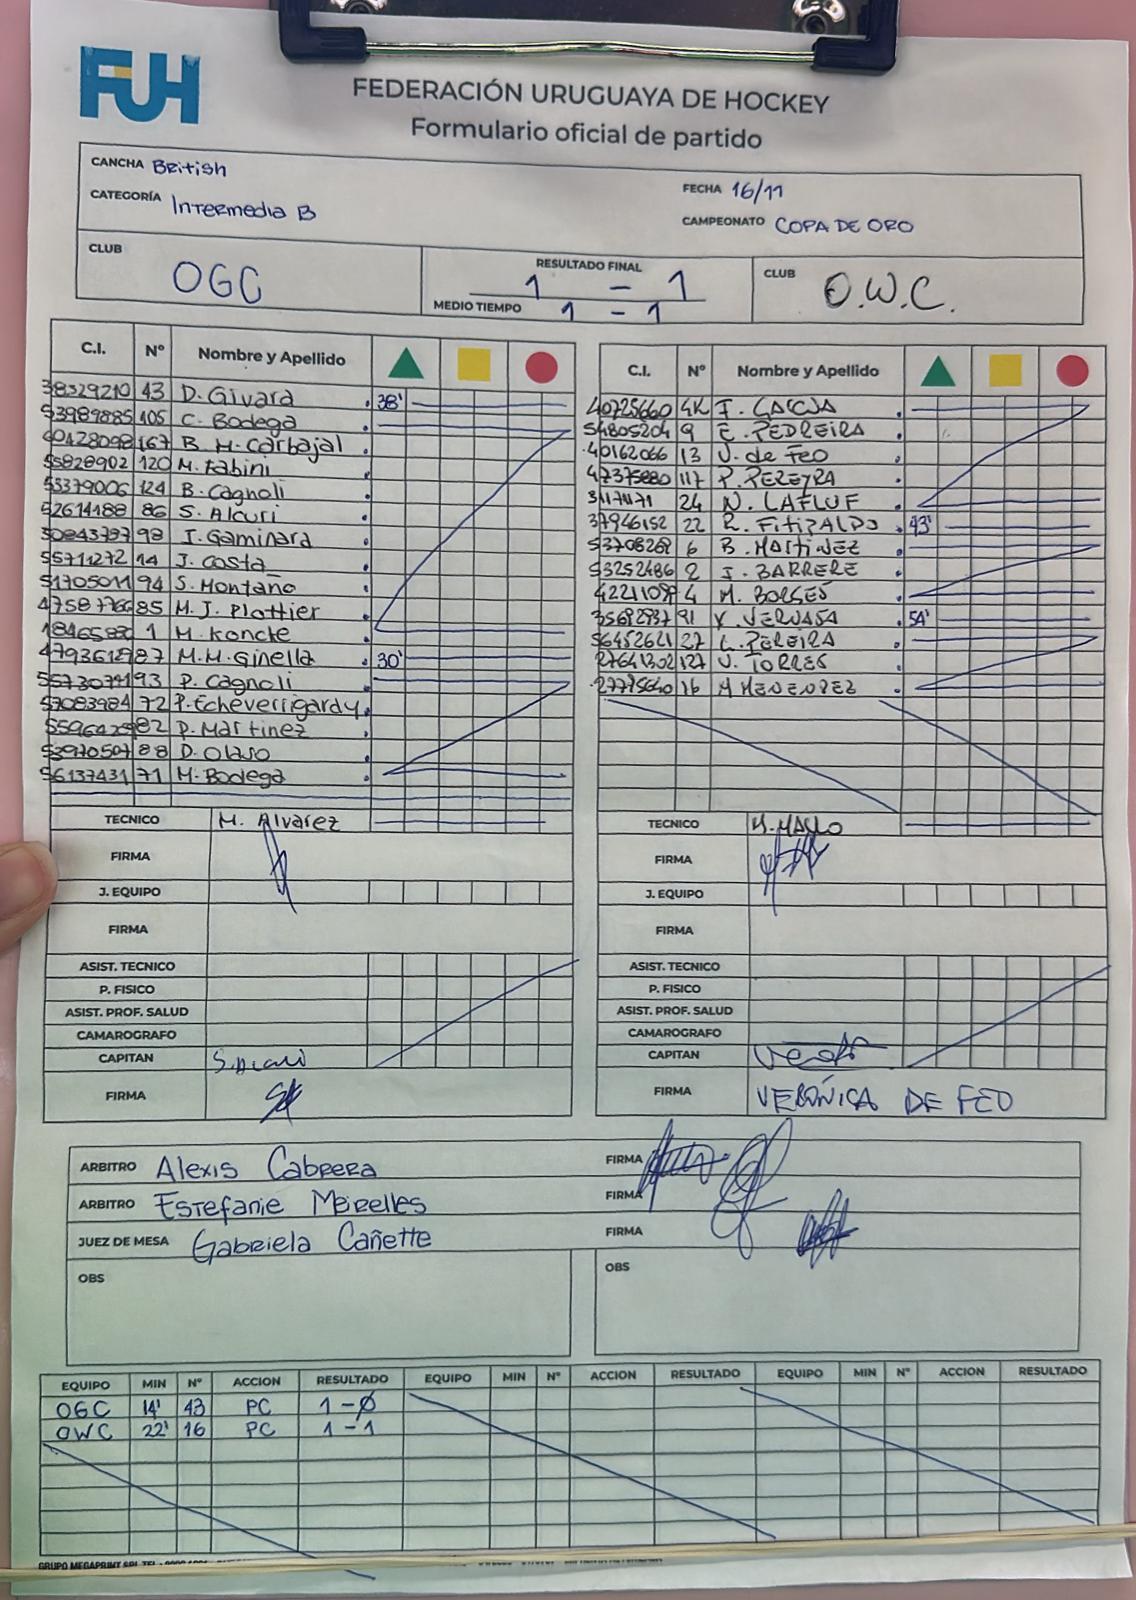 FUH
FEDERACIÓN URUGUAYA DE HOCKEY
Formulario oficial de partido
CANCHA British
FECHA 16/11
CATEGORÍA Intermedia B
CAMPEONATO COPA DE ORO
CLUB OGC
RESULTADO FINAL 1 - 1
MEDIO TIEMPO 1 - 1
CLUB O.W.C.
C.I. Nº Nombre y Apellido
38329210 43 D. Givara 38'
53989885 105 C. Bodega
167 B. M. Carbajal
55828902 120 M. Fabini
55379006 124 B. Cagnoli
52614188 86 S. Alcuri
98 I. Gaminara
55711272 14 J. Costa
51705011 94 S. Montaño
85 M. J. Plottier
1 M. Koncke
87 M.M. Ginella 30'
93 P. Cagnoli
57083984 72 P. Echeverrigardy
82 P. Martinez
53970507 88 D. Olaso
56137431 71 M. Bodega
TECNICO M. Alvarez
FIRMA
J. EQUIPO
FIRMA
ASIST. TECNICO
P. FISICO
ASIST. PROF. SALUD
CAMAROGRAFO
CAPITAN
FIRMA
C.I. Nº Nombre y Apellido
40725660 GK F. GARCIA
54805204 9 E. PEDREIRA
40162066 13 V. de Feo
47375880 117 P. PEREYRA
24 N. LAFLUF
37946152 22 R. FITIPALDO 43'
53708268 6 B. MARTINEZ
53252486 2 J. BARRERE
4 M. BORGES
91 54'
56452621 27 L. PEREIRA
27641302 127 V. TORRES
16 M MENENDEZ
TECNICO
FIRMA
J. EQUIPO
FIRMA
ASIST. TECNICO
P. FISICO
ASIST. PROF. SALUD
CAMAROGRAFO
CAPITAN
FIRMA VERÓNICA DE FEO
ARBITRO Alexis Cabrera FIRMA
ARBITRO Estefanie Meirelles FIRMA
JUEZ DE MESA Gabriela Cañette FIRMA
OBS
OBS
EQUIPO MIN Nº ACCION RESULTADO EQUIPO MIN Nº ACCION RESULTADO EQUIPO MIN Nº ACCION RESULTADO
OGC 14' 43 PC 1-0
OWC 22' 16 PC 1-1
GRUPO MEGAPRINT SRL TEL.: